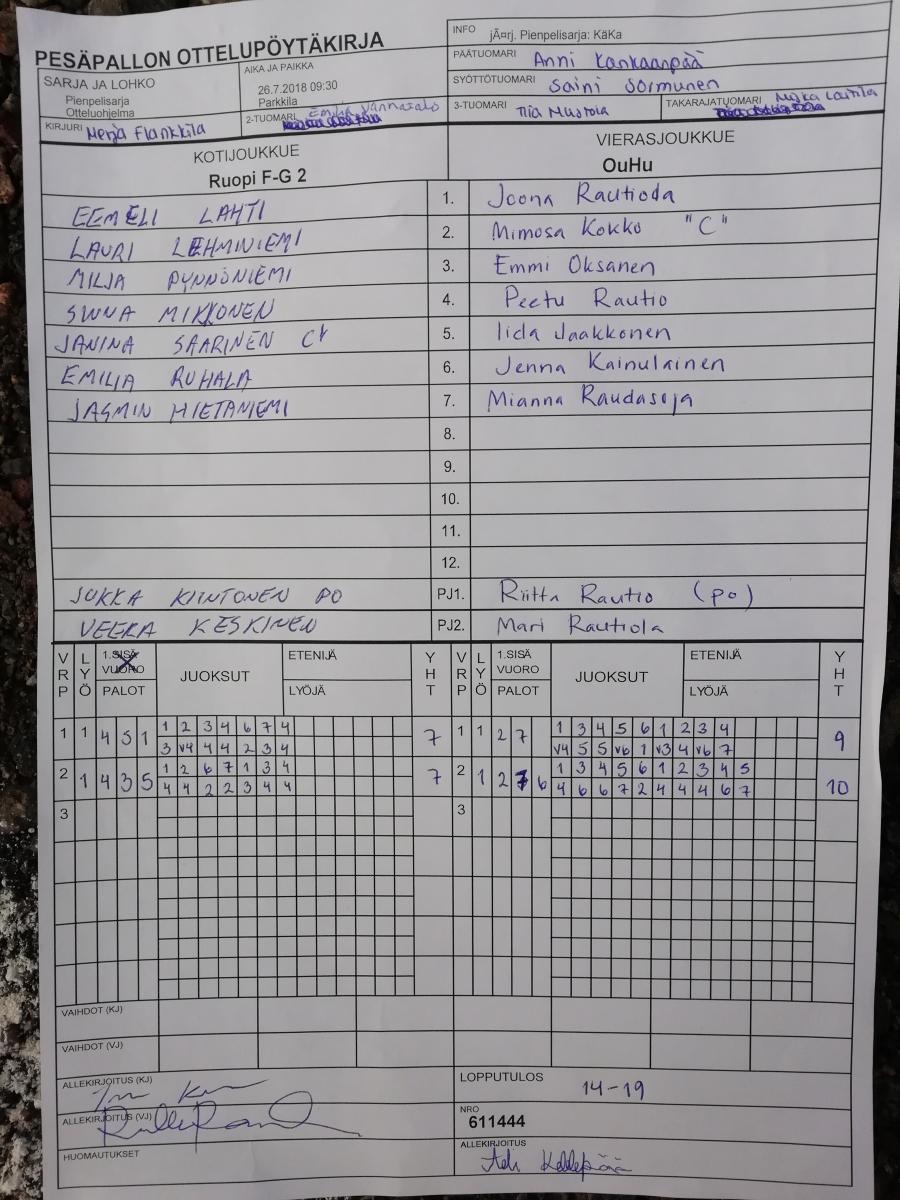 PESÄPALLON OTTELUPÖYTÄKIRJA
INFO jÃ¤rj. Pienpelisarja: KäKa
PÄÄTUOMARI Anni Kankaanpää
SYÖTTÖTUOMARI Saini Sormunen
3-TUOMARI Tiia Mustola TAKARAJATUOMARI Miska Laitila
SARJA JA LOHKO
Pienpelisarja
Otteluohjelma
AIKA JA PAIKKA
26.7.2018 09:30
Parkkila
KIRJURI Merja Flankkila 2-TUOMARI Emilia
KOTIJOUKKUE VIERASJOUKKUE
Ruopi F-G 2 OuHu
EEMELI LAHTI 1. Joona Rautiola
LAURI LEHMINIEMI 2. Mimosa Kokko "C"
MILJA PYNNÖNIEMI 3. Emmi Oksanen
SINNA MIKKONEN 4. Peetu Rautio
JANINA SAARINEN C 5. Iida Jaakkonen
EMILIA RUHALA 6. Jenna Kainulainen
JASMIN HIETANIEMI 7. Mianna Raudasoja
8.
9.
10.
11.
12.
JUKKA KIINTONEN PO PJ1. Riitta Rautio (po)
VEERA KESKINEN PJ2. Mari Rautiola
VRP LYÖ 1.SISÄ VUORO PALOT JUOKSUT ETENIJÄ LYÖJÄ YHT VRP LYÖ 1.SISÄ VUORO PALOT JUOKSUT ETENIJÄ LYÖJÄ YHT
1 1 4 5 1 1 2 3 4 6 7 4 7 1 1 2 7 1 3 4 5 6 1 2 3 4 9
3 v4 4 4 2 3 4 v4 5 5 v6 1 v3 4 v6 7
2 1 4 3 5 1 2 6 7 1 3 4 7 2 1 2 7 6 1 3 4 5 6 1 2 3 4 5 10
4 4 2 2 3 4 4 4 6 6 7 2 4 4 4 6 7
3 3
VAIHDOT (KJ)
VAIHDOT (VJ)
ALLEKIRJOITUS (KJ) LOPPUTULOS 14-19
ALLEKIRJOITUS (VJ) NRO
611444
HUOMAUTUKSET ALLEKIRJOITUS